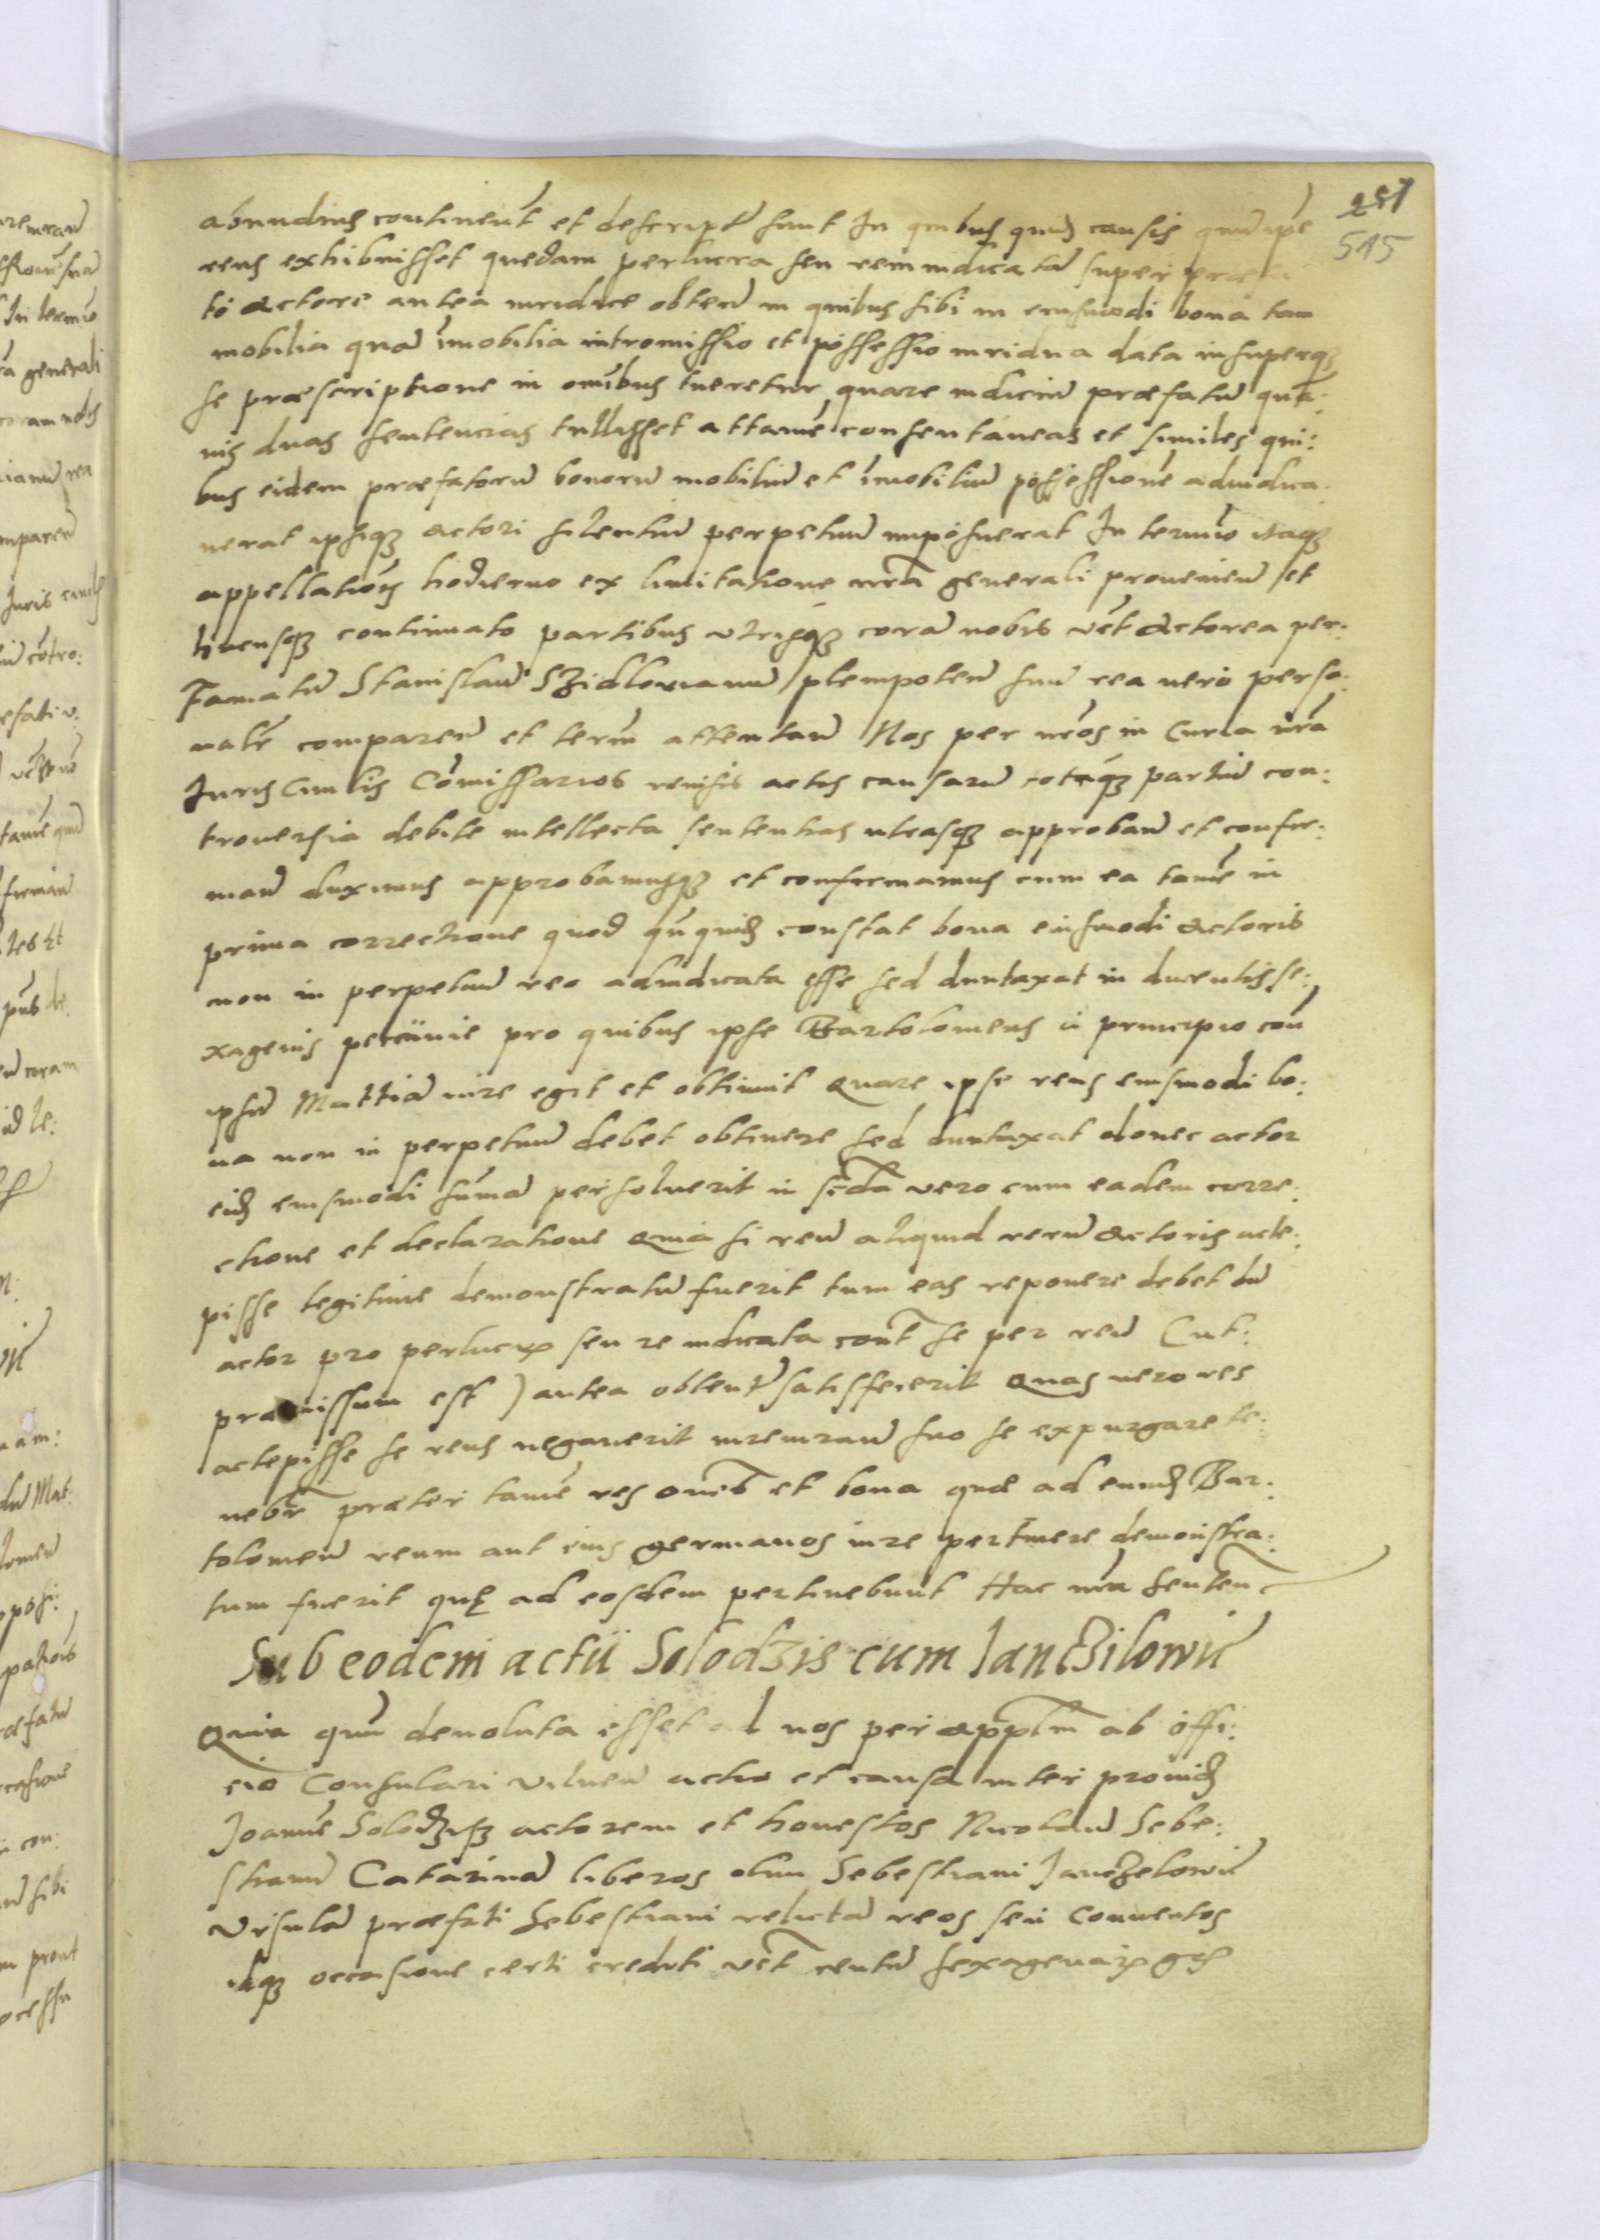 251
515
abundius continent et descript sunt In quibus quid causis quu ipe
reus exhibuisset quedam perlucra seu rem iudicatã super præfa
to actore antea iuridice obten in quibus sibi in eiusmodi bona tam
mobilia quã imobilia intromissio et possessio iuridica data insuperq
se præscriptione in omibus tueretur quare iudiciũ præfatũ quã:
uis duas sentencias tullisset attamẽ consentaneas et similes qui:
bus eidem præfatorũ bonorũ mobiliũ et imobiliũ possessionẽ adiudica
uerat ipsiq actori silentiũ perpetuũ imposuerat In termĩo itaq
appellatiõis hodierno ex limitatione nrã generali proueniẽ et
hucusq continuato partibus vtrisq corã nobis vet actorea per:
Famatũ Stanislaũ Szidlouianũ plempotẽn suũ rea uero perso:
naltr comparẽn et term attentañ Nos per nros in Curia nrã
Juris Ciuilis Comissarios reuisis actis causarũ totaq partiũ con:
trouersia debite intellecta sententias utrasq approbañ et confir:
mañ duximus approbamusq et confirmamus cum ea tamẽ in
prima correctione quod quuquid constat bona eiusmodi actoris
non in perpetuũ reo adiudicata esse sed duntaxat in ducentis se:
xagenis pecuniæ pro quibus ipse Bartolomeus a principio con
ipsũ Mattiã iure egit et obtinuit Quare ipse reus eiusmodi bo:
na non in perpetuũ debet obtinere sed duntaxat donec actor
eid eiusmodi sumã persoluerit in scda vero cum eadem corre:
ctione et declaratione Quia si reũ aliquid rerũ actoris acce:
pisse legitime demonstratũ fuerit tum eas reponere debet dũ
actor pro perlucro seu re iudicata cont se per reũ Cut:
præmissum est ) antea obtent satisfecerit Quas uero res
accepisse se reus negauerit iureiurañ suo se expurgare te:
nebr præter tamẽ res omes et bona quæ ad eumd Bar:
tolomeũ reum aut eius germanos iure pertinere demonstra:
tum fuerit quę ad eosdem pertinebunt Hac nrã senten
Sub eodem actu Solodzis cum Janczilowic
Quia quũ deuoluta esset ad nos per appltm ab offi:
cio Consulari Vilneñ actio et causa inter prouid
Joannẽ Solodzisz actorem et honestos Nicolaũ Sebe:
stianũ Catarinã liberos olim Sebestiani Janczelowic
Vrsulã præfati Sebestiani relictã reos seu conuentos
idq occasione certi crediti vet centũ sexagenarũ gs